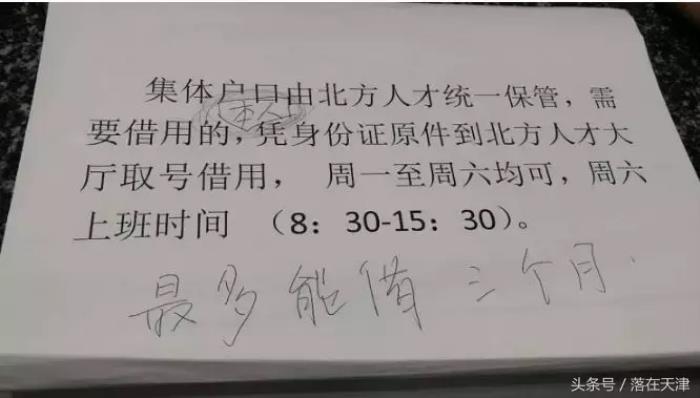 集体户口由北方人才统一保管，需
(本人)
要借用的，凭身份证原件到北方人才大
厅取号借用， 周一至周六均可，周六
上班时间 （8：30-15：30）。
最多能借 三个月.
头条号／落在天津